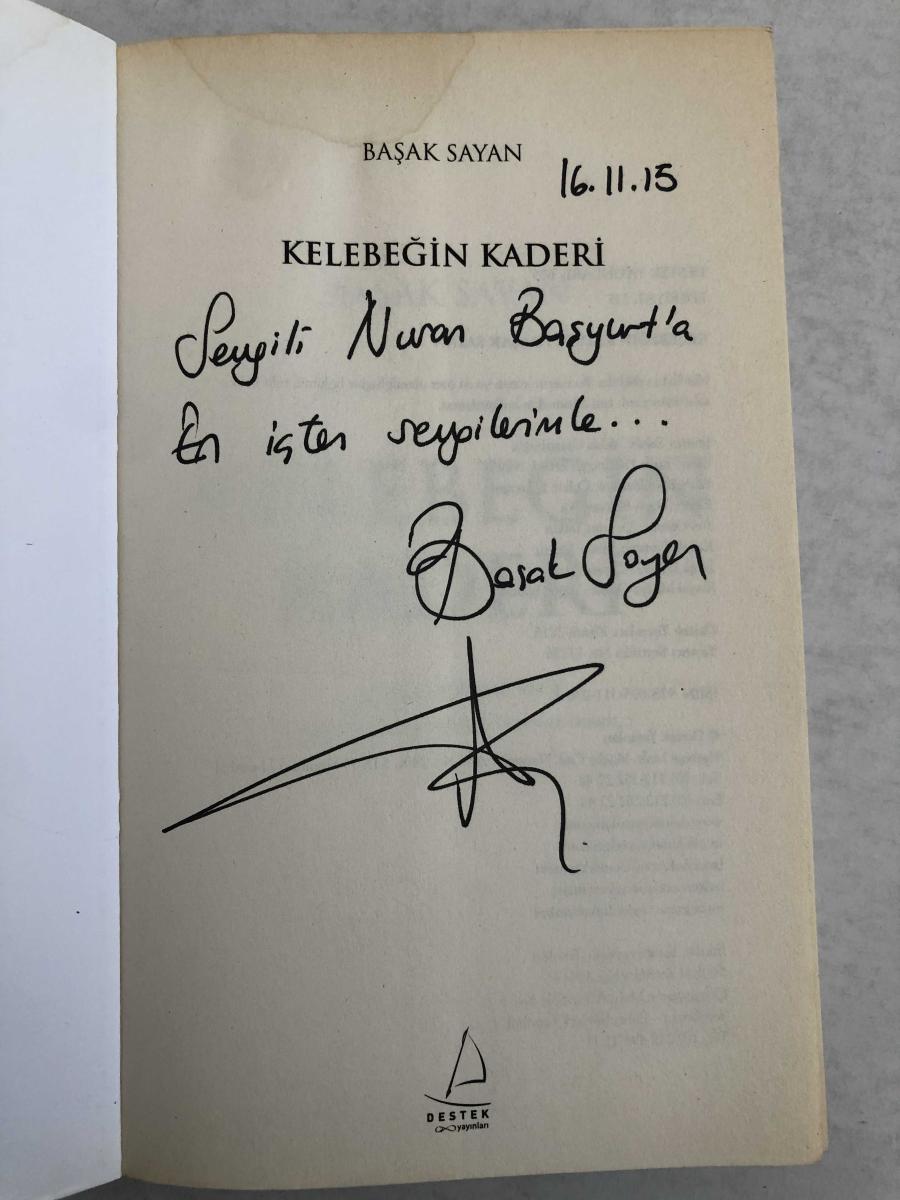 BAŞAK SAYAN
16.11.15
KELEBEĞİN KADERİ
Sevgili Nuran Başyurt'a
En içten sevgilerimle...
Başak Sayan
DESTEK
yayınları